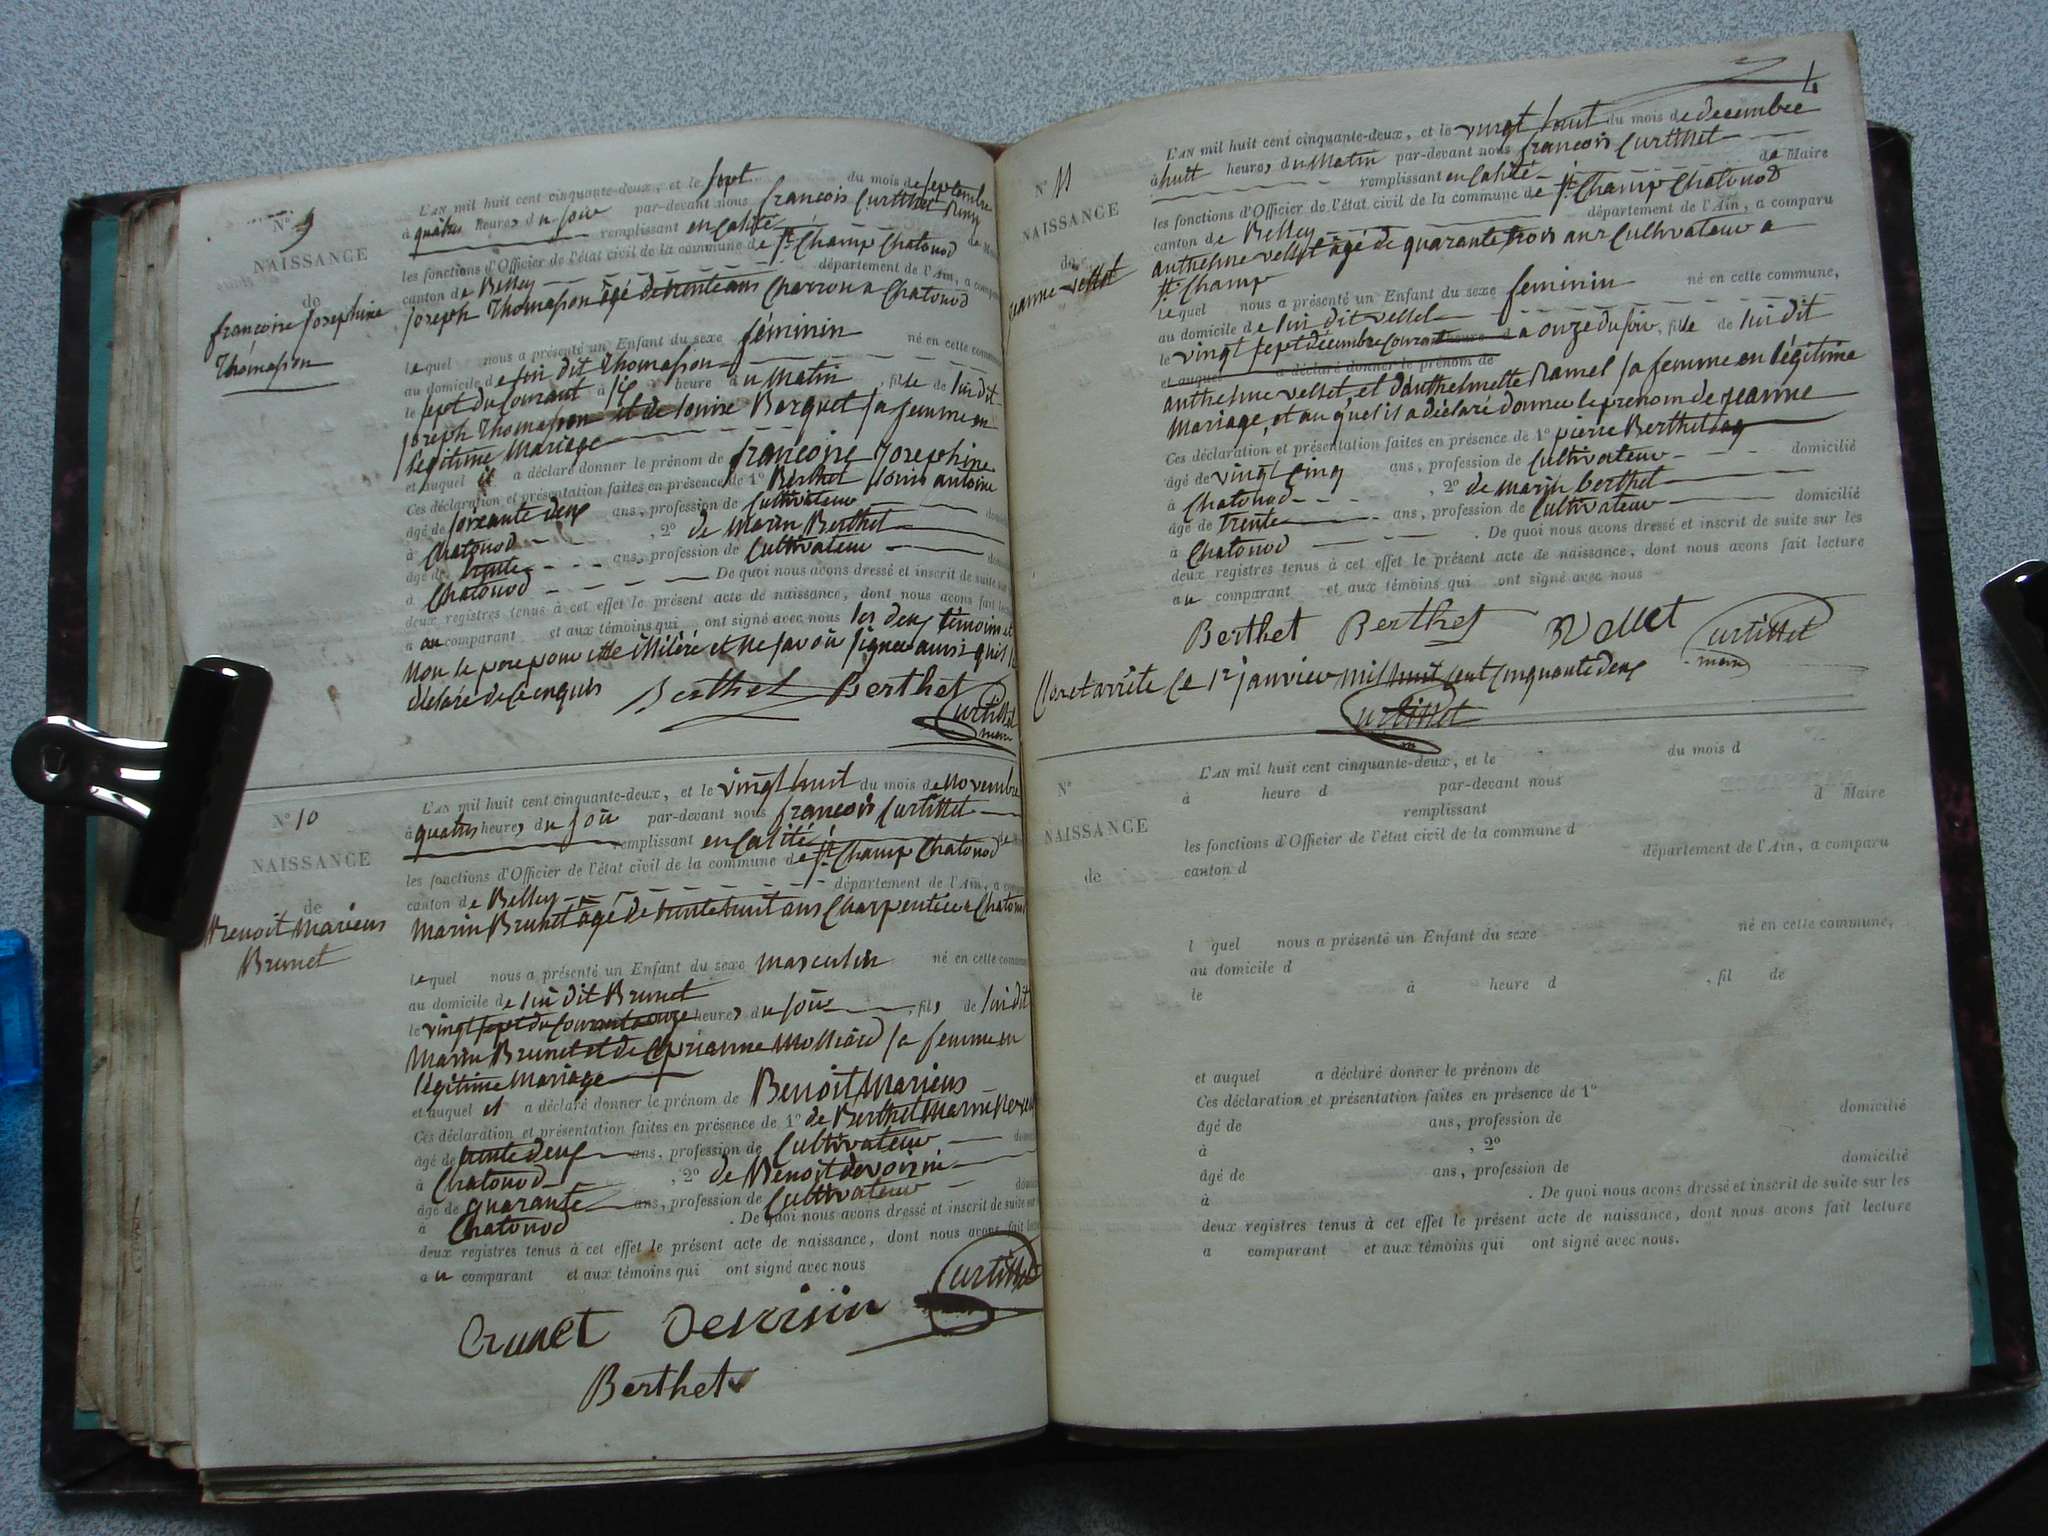 N° 9
NAISSANCE
de
françoise Josephine
Thomasson
L'AN mil huit cent cinquante-deux, et le sept du mois de septembre
à quatre heures du soir par-devant nous françois Curtillet
remplissant en qualité de
les fonctions d'Officier de l'état civil de la commune de St Champ Chatonod
canton de Belley département de l'Ain, a
joseph Thomasson âgé de trente ans Charron a Chatonod
lequel nous a présenté un Enfant du sexe féminin né en cette
au domicile de lui dit Thomasson
le sept du courant à six heure du Matin, fille de lui dit
joseph Thomasson et de louise Barquet sa femme en
légitime Mariage
et auquel il a déclaré donner le prénom de françoise Josephine
Ces déclaration et présentation faites en présence de 1° Berthet louis antoine
âgé de soixante deux ans, profession de Cultivateur
à Chatonod , 2° de Marin Berthet
âgé de trente ans, profession de Cultivateur
à Chatonod De quoi nous avons dressé et inscrit de suite sur
deux registres tenus à cet effet le présent acte de naissance, dont nous avons fait
a au comparant et aux témoins qui ont signé avec nous les deux témoins et
Non le pere pour être illiteré et ne savoir signer ainsi qu'il
déclaré de ce enquis
Berthet Berthet
Curtillet
maire
N° 10
NAISSANCE
de
Benoit Mariens
Brunet
L'AN mil huit cent cinquante-deux, et le vingt huit du mois de Novembre
à quatre heures du soir par-devant nous françois Curtillet
remplissant en qualité de
les fonctions d'Officier de l'état civil de la commune de St Champ Chatonod
canton de Belley département de l'Ain, a
Marin Brunet âgé de trente huit ans Charpentier a
lequel nous a présenté un Enfant du sexe masculin né en cette
au domicile de lui dit Brunet
le vingt sept du courant a onze heures du soir, fils de lui dit
Marin Brunet et de sa femme en
légitime Mariage
et auquel il a déclaré donner le prénom de Benoit Mariens
Ces déclaration et présentation faites en présence de 1° de Berthet
âgé de trente deux ans, profession de Cultivateur
à Chatonod , 2° de Benoit devoisin
âgé de quarante ans, profession de Cultivateur
à Chatonod . De quoi nous avons dressé et inscrit de suite sur
deux registres tenus à cet effet le présent acte de naissance, dont nous avons fait
a u comparant et aux témoins qui ont signé avec nous
Brunet Devoisin Curtillet
Berthet
4
N° 11
NAISSANCE
de
jeanne vellet
L'AN mil huit cent cinquante-deux, et le vingt huit du mois de decembre
à huit heures du Matin par-devant nous françois Curtillet
remplissant en qualité de Maire
les fonctions d'Officier de l'état civil de la commune de St Champ Chatonod
canton de Belley département de l'Ain, a comparu
anthelme vellet âgé de quarante trois ans Cultivateur a
St Champ
lequel nous a présenté un Enfant du sexe feminin né en cette commune,
au domicile de lui dit vellet
le vingt sept décembre courant a onze du soir, fille de lui dit
et auquel a déclaré donner le prénom de
anthelme vellet et d'anthelmette Ramel sa femme en légitime
Mariage, et au quel il a déclaré donner le prenom de jeanne
Ces déclaration et présentation faites en présence de 1° pierre Berthet
âgé de vingt cinq ans, profession de Cultivateur domicilié
à Chatonod , 2° de marin berthet
âgé de trente ans, profession de Cultivateur domicilié
à Chatonod . De quoi nous avons dressé et inscrit de suite sur les
deux registres tenus à cet effet le présent acte de naissance, dont nous avons fait lecture
a u comparant et aux témoins qui ont signé avec nous
Berthet Berthet Vellet Curtillet
maire
Clos et arrêté le 1r janvier mil huit cent cinquante deux
Curtillet
N°
NAISSANCE
de
L'AN mil huit cent cinquante-deux, et le du mois d
à heure d par-devant nous
remplissant d Maire
les fonctions d'Officier de l'état civil de la commune d
canton d département de l'Ain, a comparu
l quel nous a présenté un Enfant du sexe né en cette commune,
au domicile d
le à heure d , fil de
et auquel a déclaré donner le prénom de
Ces déclaration et présentation faites en présence de 1°
âgé de ans, profession de domicilié
à , 2°
âgé de ans, profession de domicilié
à . De quoi nous avons dressé et inscrit de suite sur les
deux registres tenus à cet effet le présent acte de naissance, dont nous avons fait lecture
a comparant et aux témoins qui ont signé avec nous.